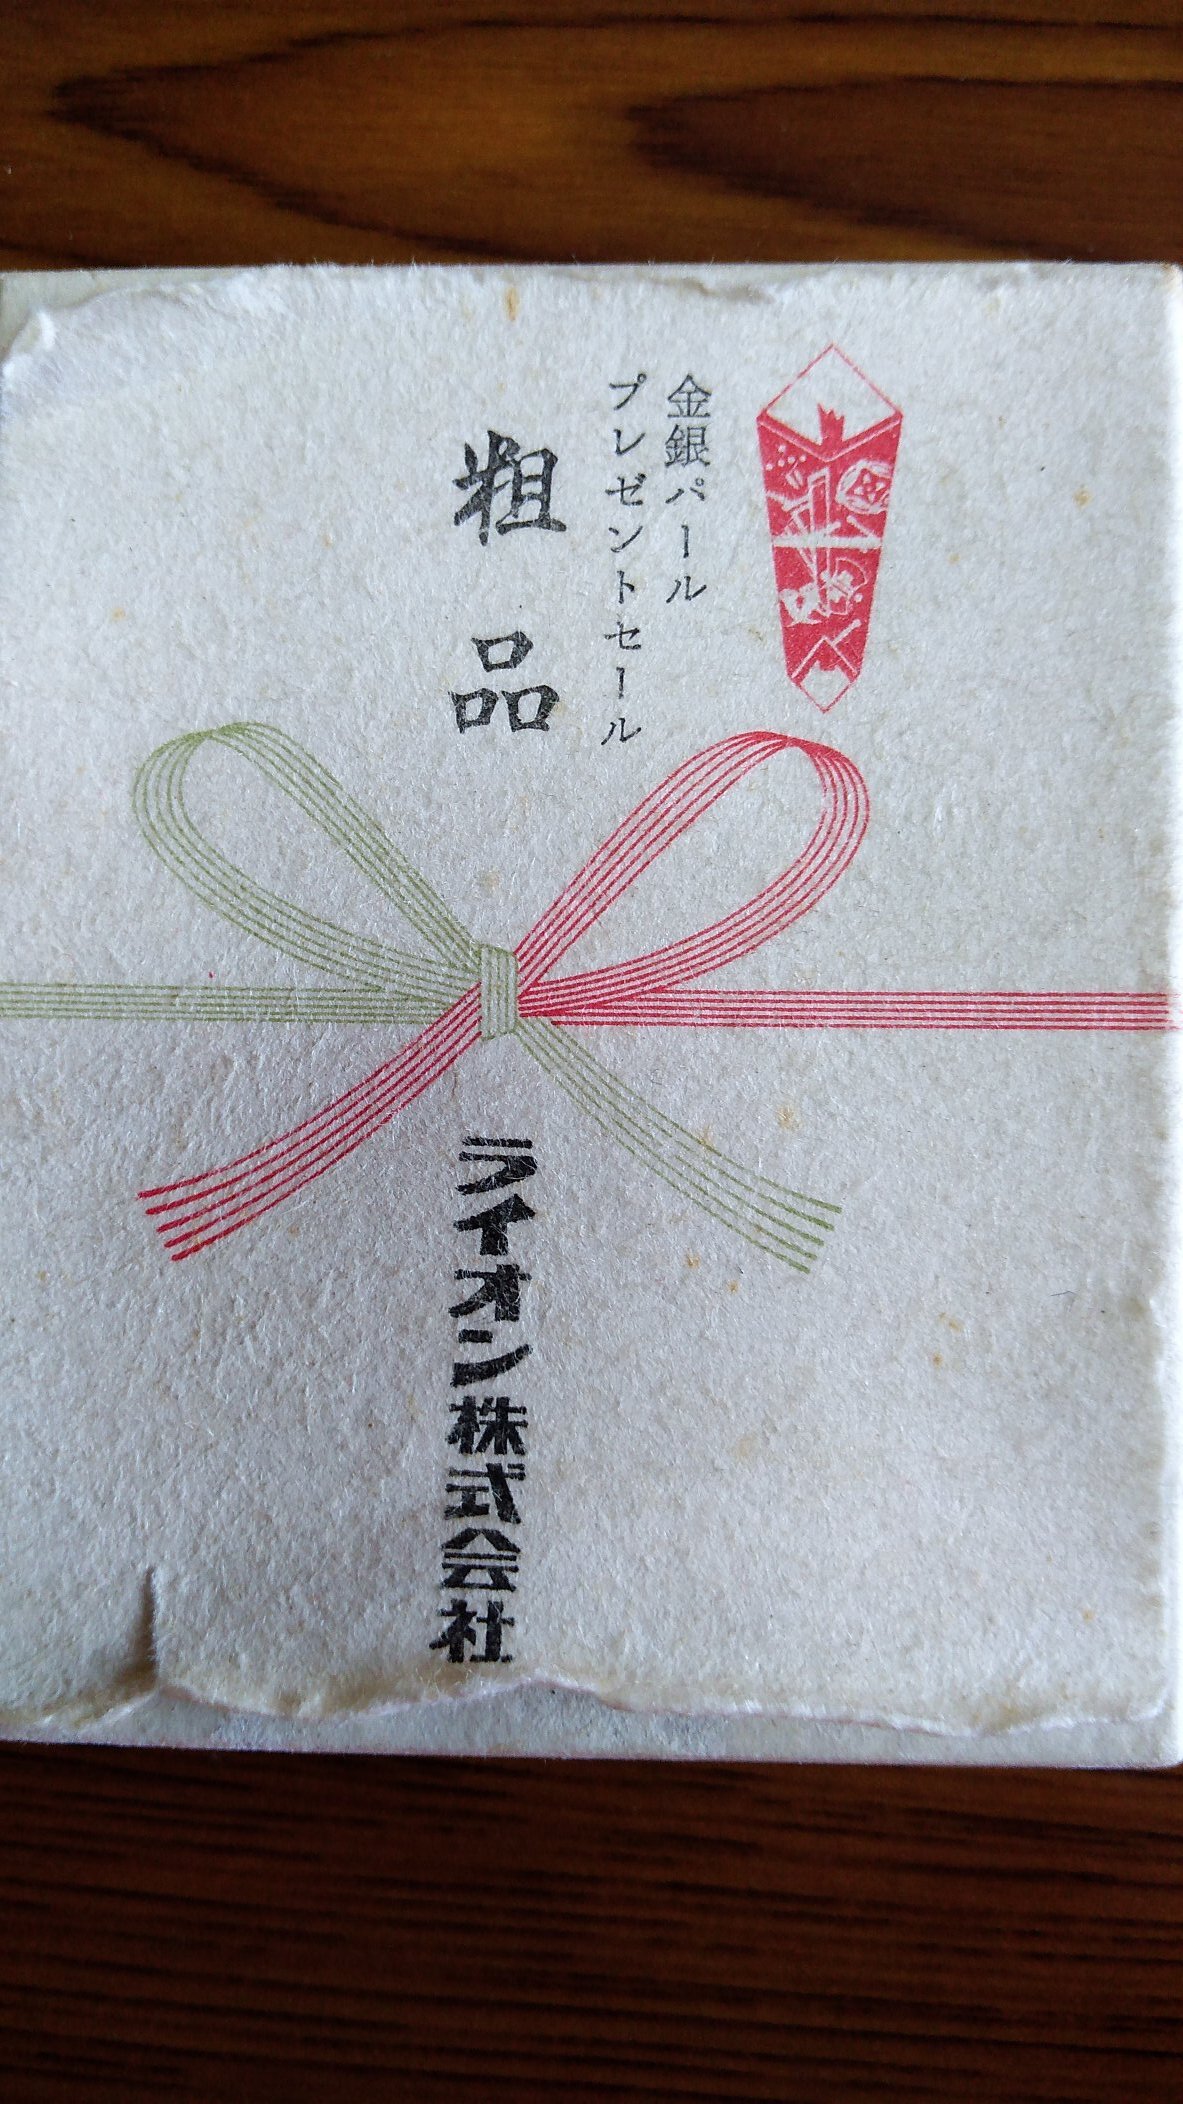 金銀パール
プレゼントセール
粗品
ライオン株式会社